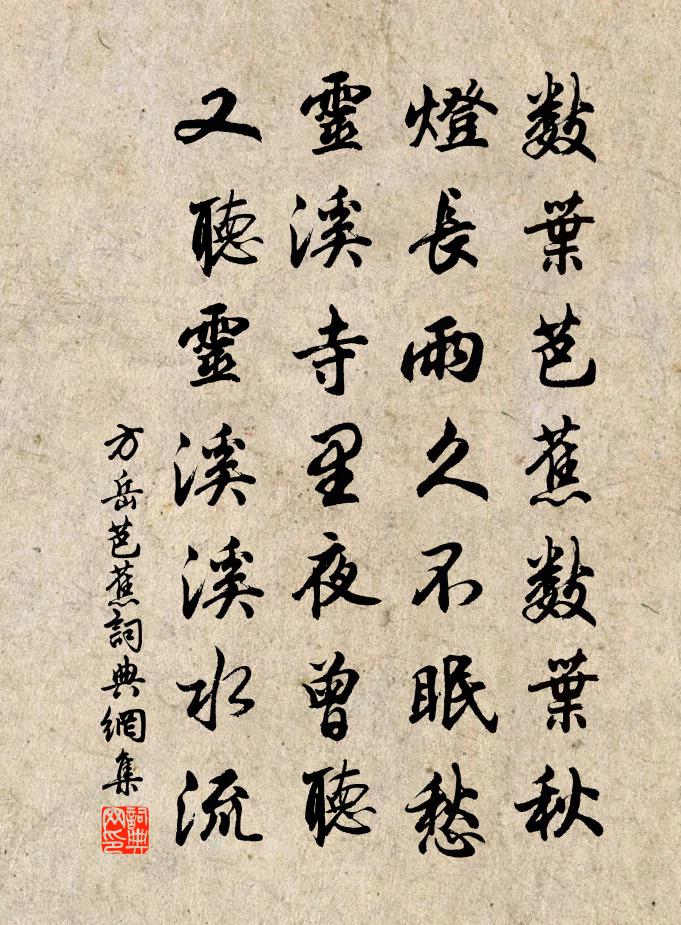 数葉芭蕉数葉秋
燈長雨久不眠愁
靈溪寺里夜曾聽
又聽靈溪溪水流
方岳芭蕉詞典網集
詞典網印